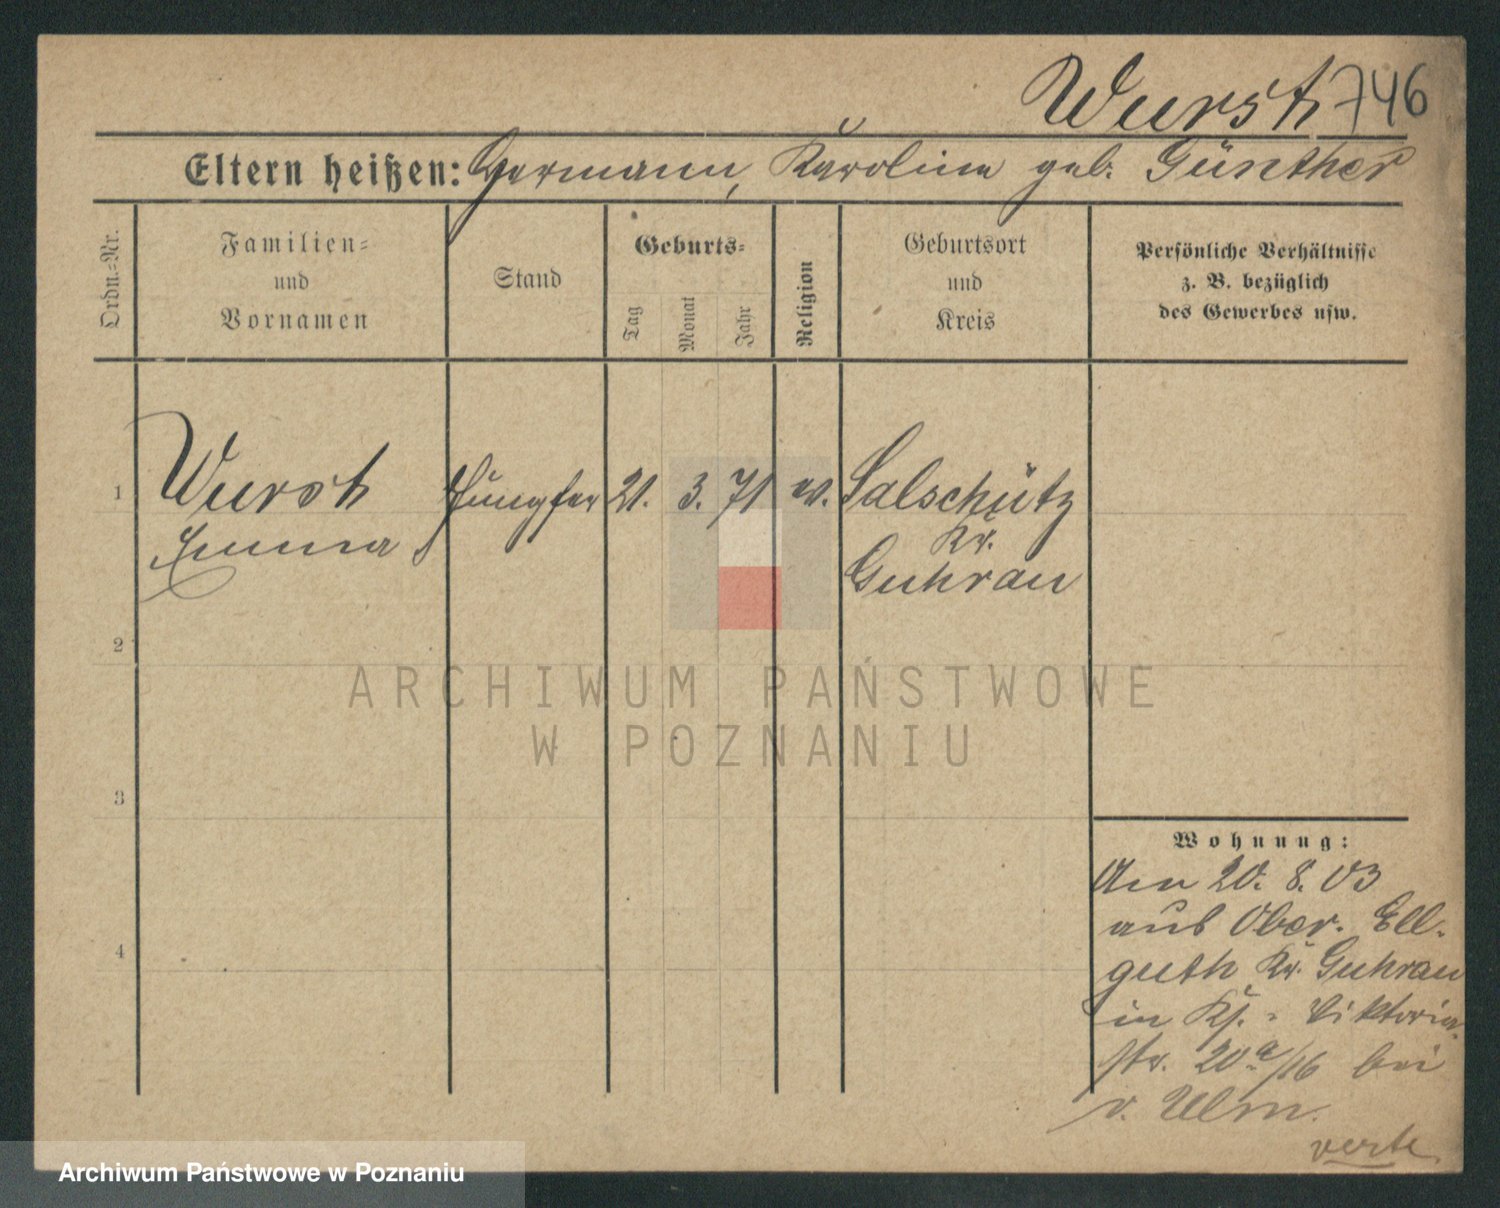 Wurst 746
Eltern heißen: Hermann, Karolina geb. Günther
Ordn.-Nr.
Familien-
und
Vornamen
Stand
Geburts-
Tag
Monat
Jahr
Religion
Geburtsort
und
Kreis
Persönliche Verhältnisse
z. B. bezüglich
des Gewerbes usw.
1 Wurst Jungfer 21. 3. 71 ev. Salschütz
Emma Kr.
Guhrau
2
3
4
ARCHIWUM PAŃSTWOWE
W POZNANIU
Wohnung:
Am 20. 8. 03
aus Ober. Ell-
guth Kr. Guhrau
in Ks. - Viktoria-
str. 20a/16 bei
v. Ulm.
verte
Archiwum Państwowe w Poznaniu